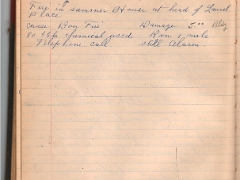 Fire in summer House at head of Laurel
Place
cause Boy Fire Damage 5.00 Bldg
no chemical used Run 1 mile
Telephone call still Alarm